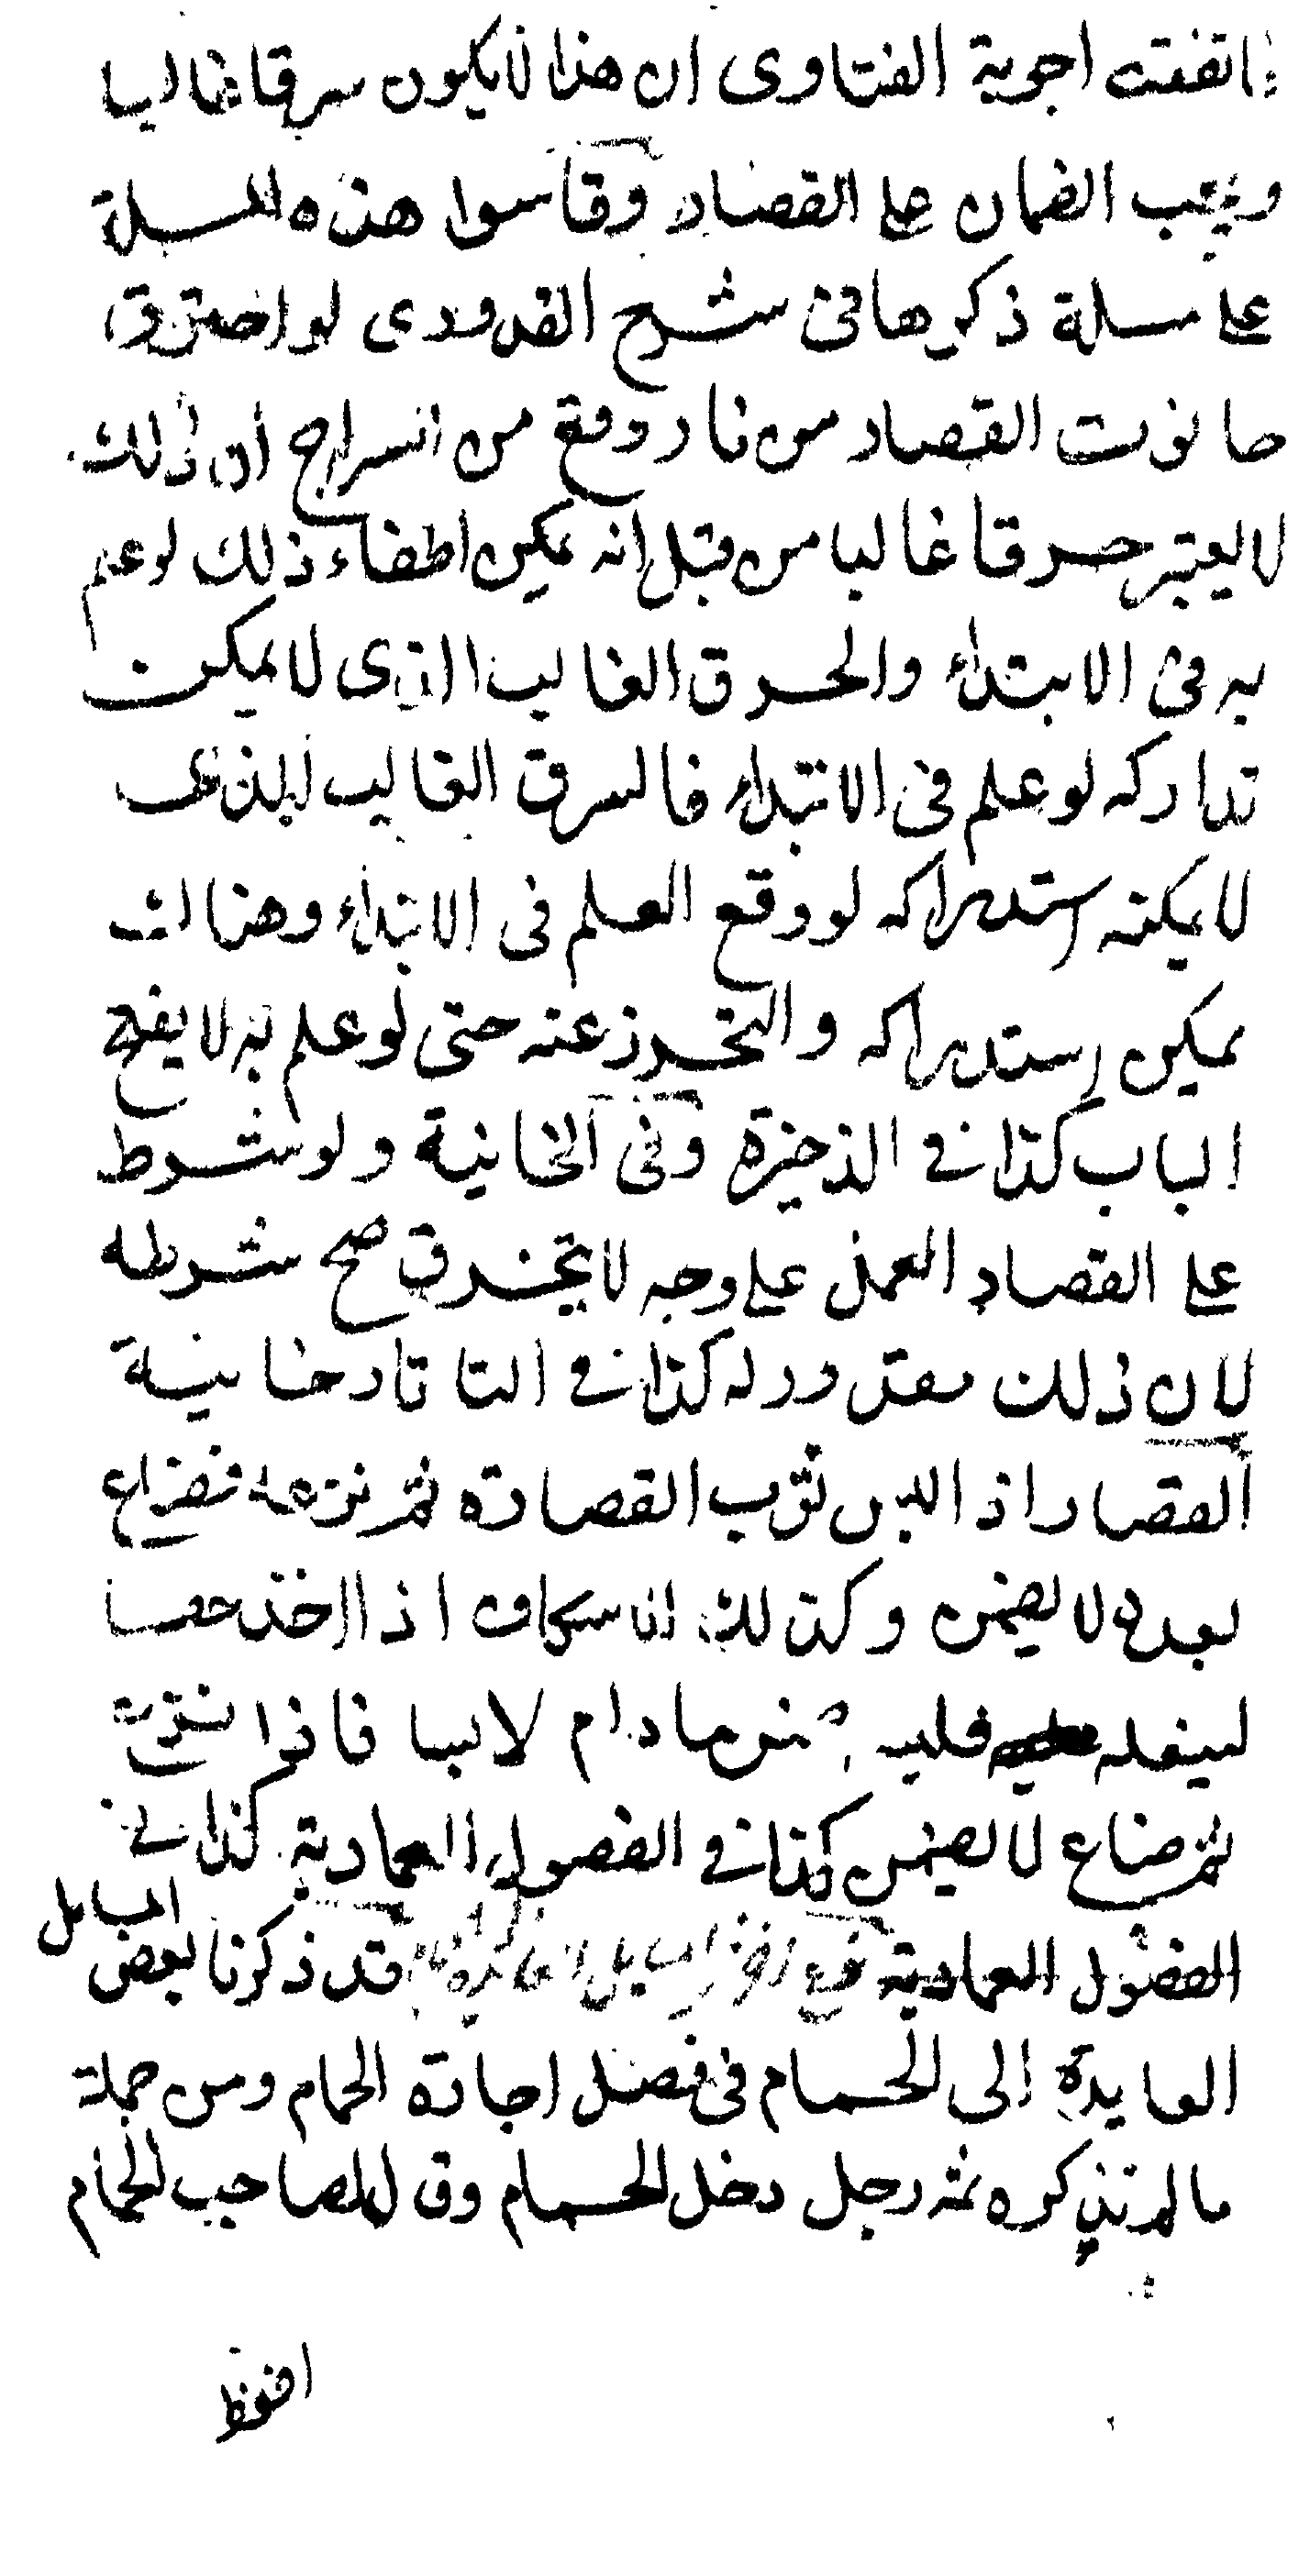 اتفقت اجوبة الفتاوى ان هذا لا يكون سرقا غالبا
ويجب الضمان على القصار وقاسوا هذه المسلة
على مسلة ذكرها في شرح القدوري لو احترق
حانوت القصار من نار وقع من السراج ان ذلك
لا يعتبر حرقا غالبا من قبل انه يمكن اطفاء ذلك لو علم
به في الابتداء والحرق الغالب الذي لا يمكن
تداركه لو علم في الابتداء فالسرق الغالب
لا يمكنه استدراكه لو وقع العلم في الابتداء وهنا
يمكن استدراكه والتحرز عنه حتى لو علم به لا يفتح
الباب كذا في الذخيرة وفي الخانية ولو شرط
على القصار العمل على وجه لا يتخرق صح شرطه
لان ذلك مقدور له كذا في التاتارخانية
القصار اذا لبس ثوب القصارة ثم نزعه فضاع
بعده لا يضمن وكذلك اسكاف اذا اخذ خفا
لينعله فلبسه ضمن ما دام لابسا فاذا نزع
ثم ضاع لا يضمن كذا في الفصول العمادية كذا في
الفصول العمادية قد ذكرنا بعض المسايل
العايدة الى الحمام في فصل اجارة الحمام ومن جملة
ما لم نذكره ثمه رجل دخل الحمام وقال لصاحب الحمام
احفظ